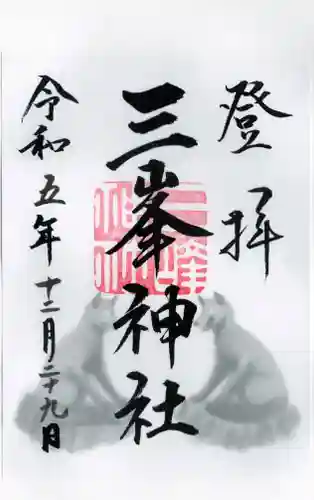 登拝
三峯神社
令和五年十二月二十九日